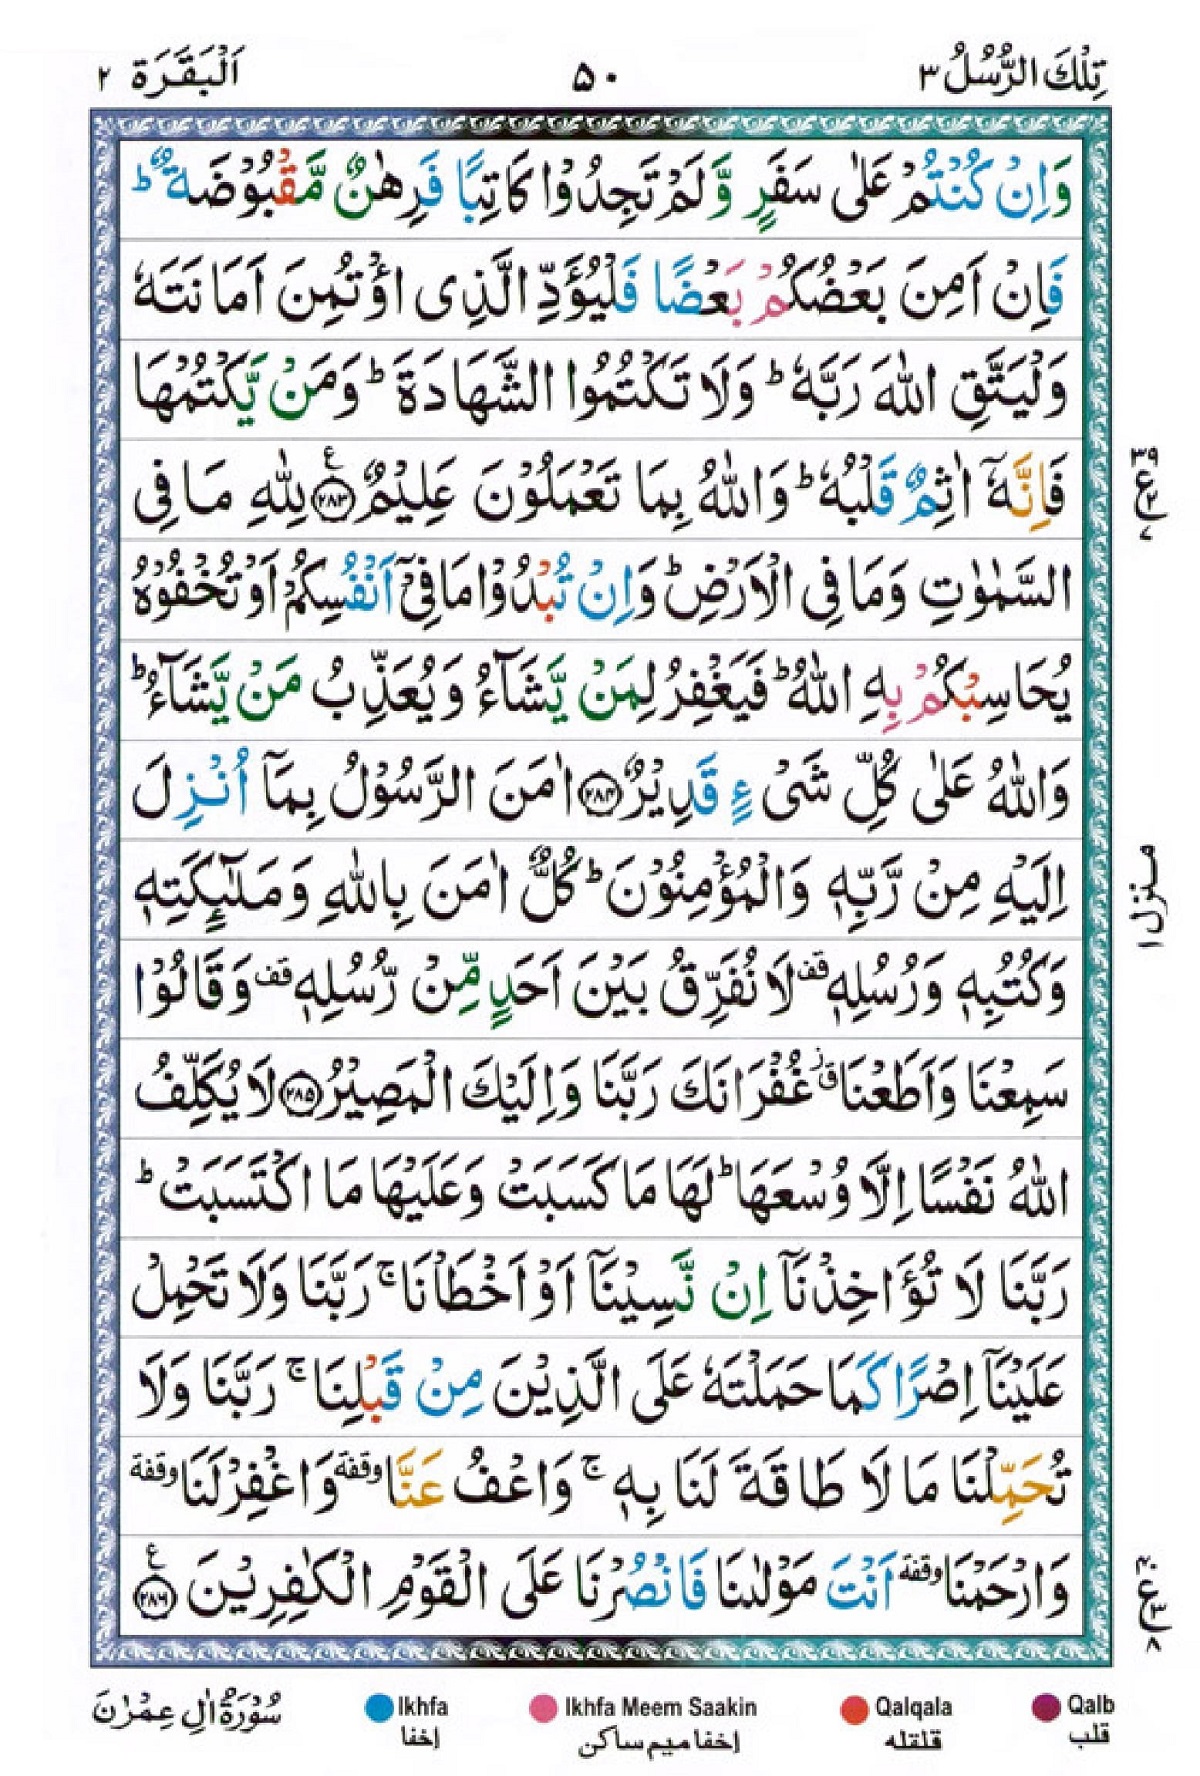 تِلْكَ الرُّسُلُ ٣
٥٠
اَلْبَقَرَة ٢
وَاِنْ كُنْتُمْ عَلٰى سَفَرٍ وَّلَمْ تَجِدُوْا كَاتِبًا فَرِهٰنٌ مَّقْبُوْضَةٌ ؕ
فَاِنْ اَمِنَ بَعْضُكُمْ بَعْضًا فَلْيُؤَدِّ الَّذِى اؤْتُمِنَ اَمَانَتَهٗ
وَلْيَتَّقِ اللّٰهَ رَبَّهٗ ؕ وَلَا تَكْتُمُوا الشَّهَادَةَ ؕ وَمَنْ يَّكْتُمْهَا
فَاِنَّهٗٓ اٰثِمٌ قَلْبُهٗ ؕ وَاللّٰهُ بِمَا تَعْمَلُوْنَ عَلِيْمٌ ﴿٢٨٣﴾ ع لِلّٰهِ مَا فِى
السَّمٰوٰتِ وَمَا فِى الْاَرْضِ ؕ وَاِنْ تُبْدُوْا مَا فِىْٓ اَنْفُسِكُمْ اَوْ تُخْفُوْهُ
يُحَاسِبْكُمْ بِهِ اللّٰهُ ؕ فَيَغْفِرُ لِمَنْ يَّشَآءُ وَيُعَذِّبُ مَنْ يَّشَآءُ ؕ
وَاللّٰهُ عَلٰى كُلِّ شَىْءٍ قَدِيْرٌ ﴿٢٨٤﴾ اٰمَنَ الرَّسُوْلُ بِمَآ اُنْزِلَ
اِلَيْهِ مِنْ رَّبِّهٖ وَالْمُؤْمِنُوْنَ ؕ كُلٌّ اٰمَنَ بِاللّٰهِ وَمَلٰٓئِكَتِهٖ
وَكُتُبِهٖ وَرُسُلِهٖ قف لَا نُفَرِّقُ بَيْنَ اَحَدٍ مِّنْ رُّسُلِهٖ قف وَقَالُوْا
سَمِعْنَا وَاَطَعْنَا ق ز غُفْرَانَكَ رَبَّنَا وَاِلَيْكَ الْمَصِيْرُ ﴿٢٨٥﴾ لَا يُكَلِّفُ
اللّٰهُ نَفْسًا اِلَّا وُسْعَهَا ؕ لَهَا مَا كَسَبَتْ وَعَلَيْهَا مَا اكْتَسَبَتْ ؕ
رَبَّنَا لَا تُؤَاخِذْنَآ اِنْ نَّسِيْنَآ اَوْ اَخْطَاْنَا ۚ رَبَّنَا وَلَا تَحْمِلْ
عَلَيْنَآ اِصْرًا كَمَا حَمَلْتَهٗ عَلَى الَّذِيْنَ مِنْ قَبْلِنَا ۚ رَبَّنَا وَلَا
تُحَمِّلْنَا مَا لَا طَاقَةَ لَنَا بِهٖ ۚ وَاعْفُ عَنَّا وقفة وَاغْفِرْ لَنَا وقفة
وَارْحَمْنَا وقفة اَنْتَ مَوْلٰىنَا فَانْصُرْنَا عَلَى الْقَوْمِ الْكٰفِرِيْنَ ﴿٢٨٦﴾ ع
منزل ١
سُوْرَةُ اٰلِ عِمْرٰنَ
Ikhfa
إخفا
Ikhfa Meem Saakin
إخفا ميم ساكن
Qalqala
قلقله
Qalb
قلب